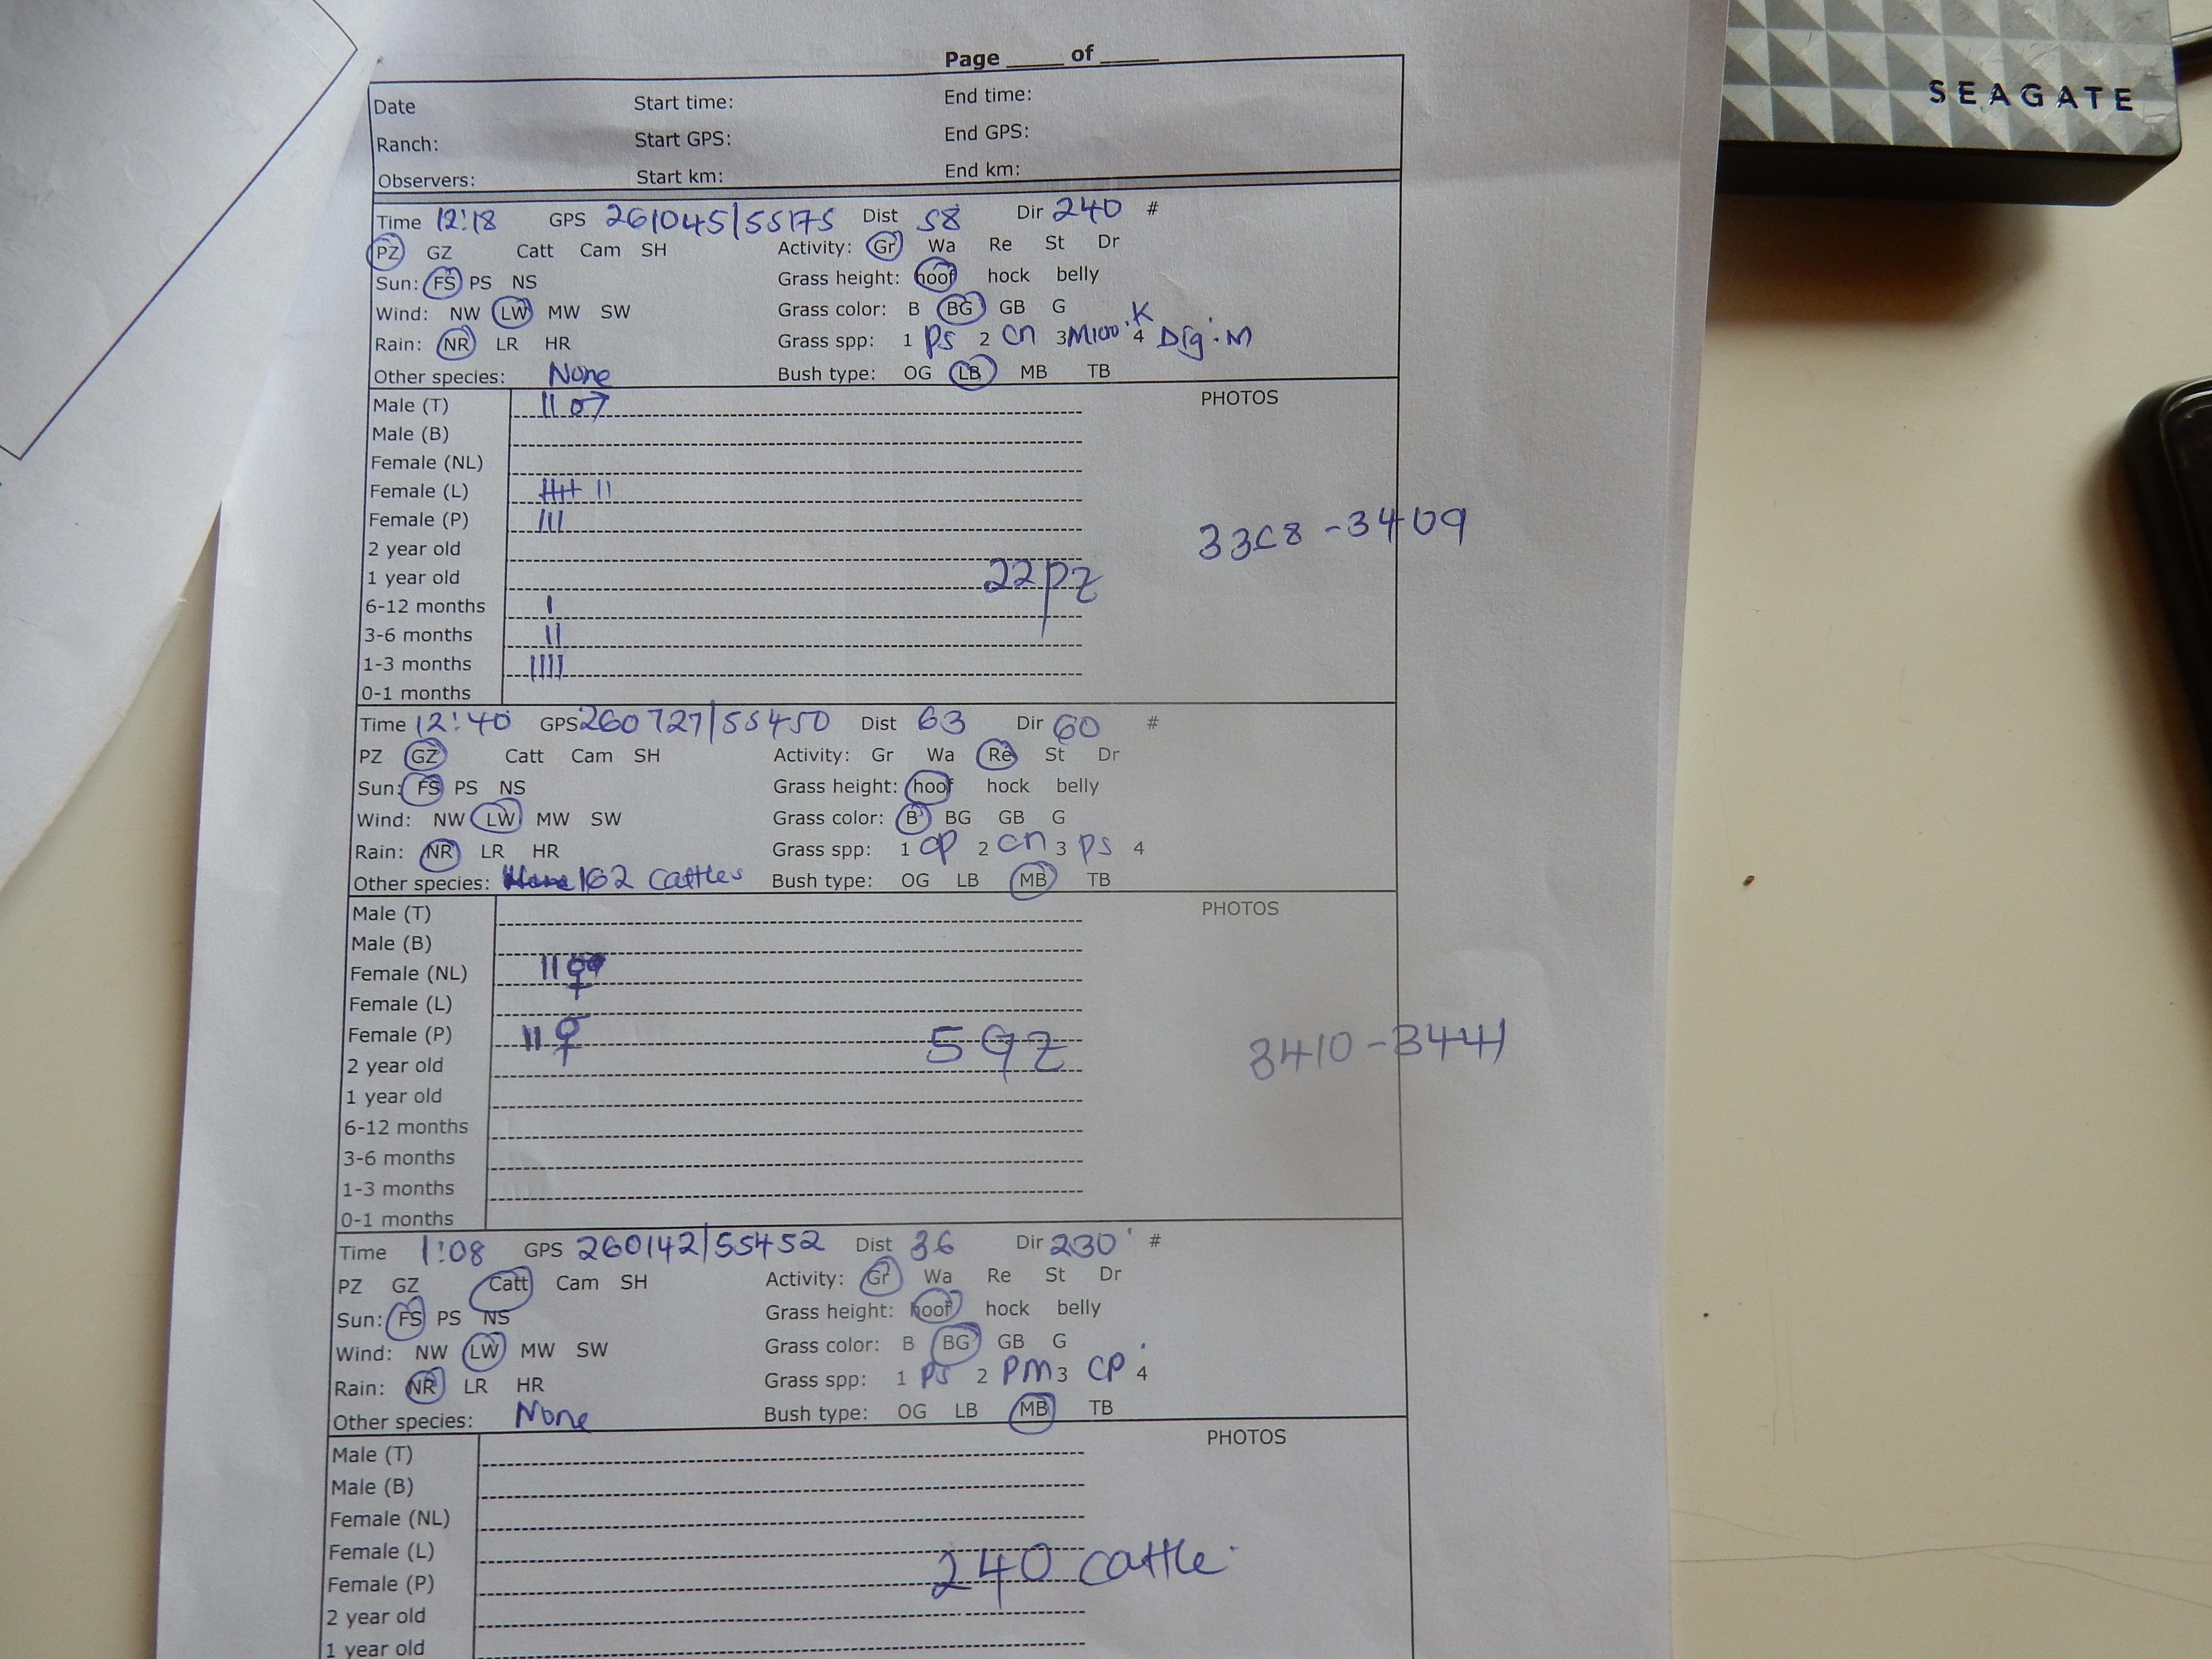 Page ____ of ____
SEAGATE
Date Start time: End time:
Ranch: Start GPS: End GPS:
Observers: Start km: End km:
Time 12:18 GPS 261045/55175 Dist 58 Dir 240 #
PZ GZ Catt Cam SH Activity: Gr Wa Re St Dr
Sun: FS PS NS Grass height: hoof hock belly
Wind: NW LW MW SW Grass color: B BG GB G
Rain: NR LR HR Grass spp: 1 ps 2 cn 3 Micro.K 4 Dig.M
Other species: None Bush type: OG LB MB TB
Male (T) || ♂ PHOTOS
Male (B)
Female (NL)
Female (L) |||| ||
Female (P) |||
2 year old
1 year old 22 pz
6-12 months |
3-6 months ||
1-3 months ||||
0-1 months
Time 12:40 GPS 260727/55450 Dist 63 Dir 60 #
PZ GZ Catt Cam SH Activity: Gr Wa Re St Dr
Sun: FS PS NS Grass height: hoof hock belly
Wind: NW LW MW SW Grass color: B BG GB G
Rain: NR LR HR Grass spp: 1 cp 2 cn 3 ps 4
Other species: 162 cattles Bush type: OG LB MB TB
Male (T) PHOTOS
Male (B)
Female (NL) || ♀
Female (L)
Female (P) || ♀ 5 GZ 3410-3441
2 year old
1 year old
6-12 months
3-6 months
1-3 months
0-1 months
Time 1:08 GPS 260142/55452 Dist 36 Dir 230 #
PZ GZ Catt Cam SH Activity: Gr Wa Re St Dr
Sun: FS PS NS Grass height: hoof hock belly
Wind: NW LW MW SW Grass color: B BG GB G
Rain: NR LR HR Grass spp: 1 ps 2 PM 3 CP 4
Other species: None Bush type: OG LB MB TB
Male (T) PHOTOS
Male (B)
Female (NL)
Female (L)
Female (P) 240 cattle
2 year old
1 year old